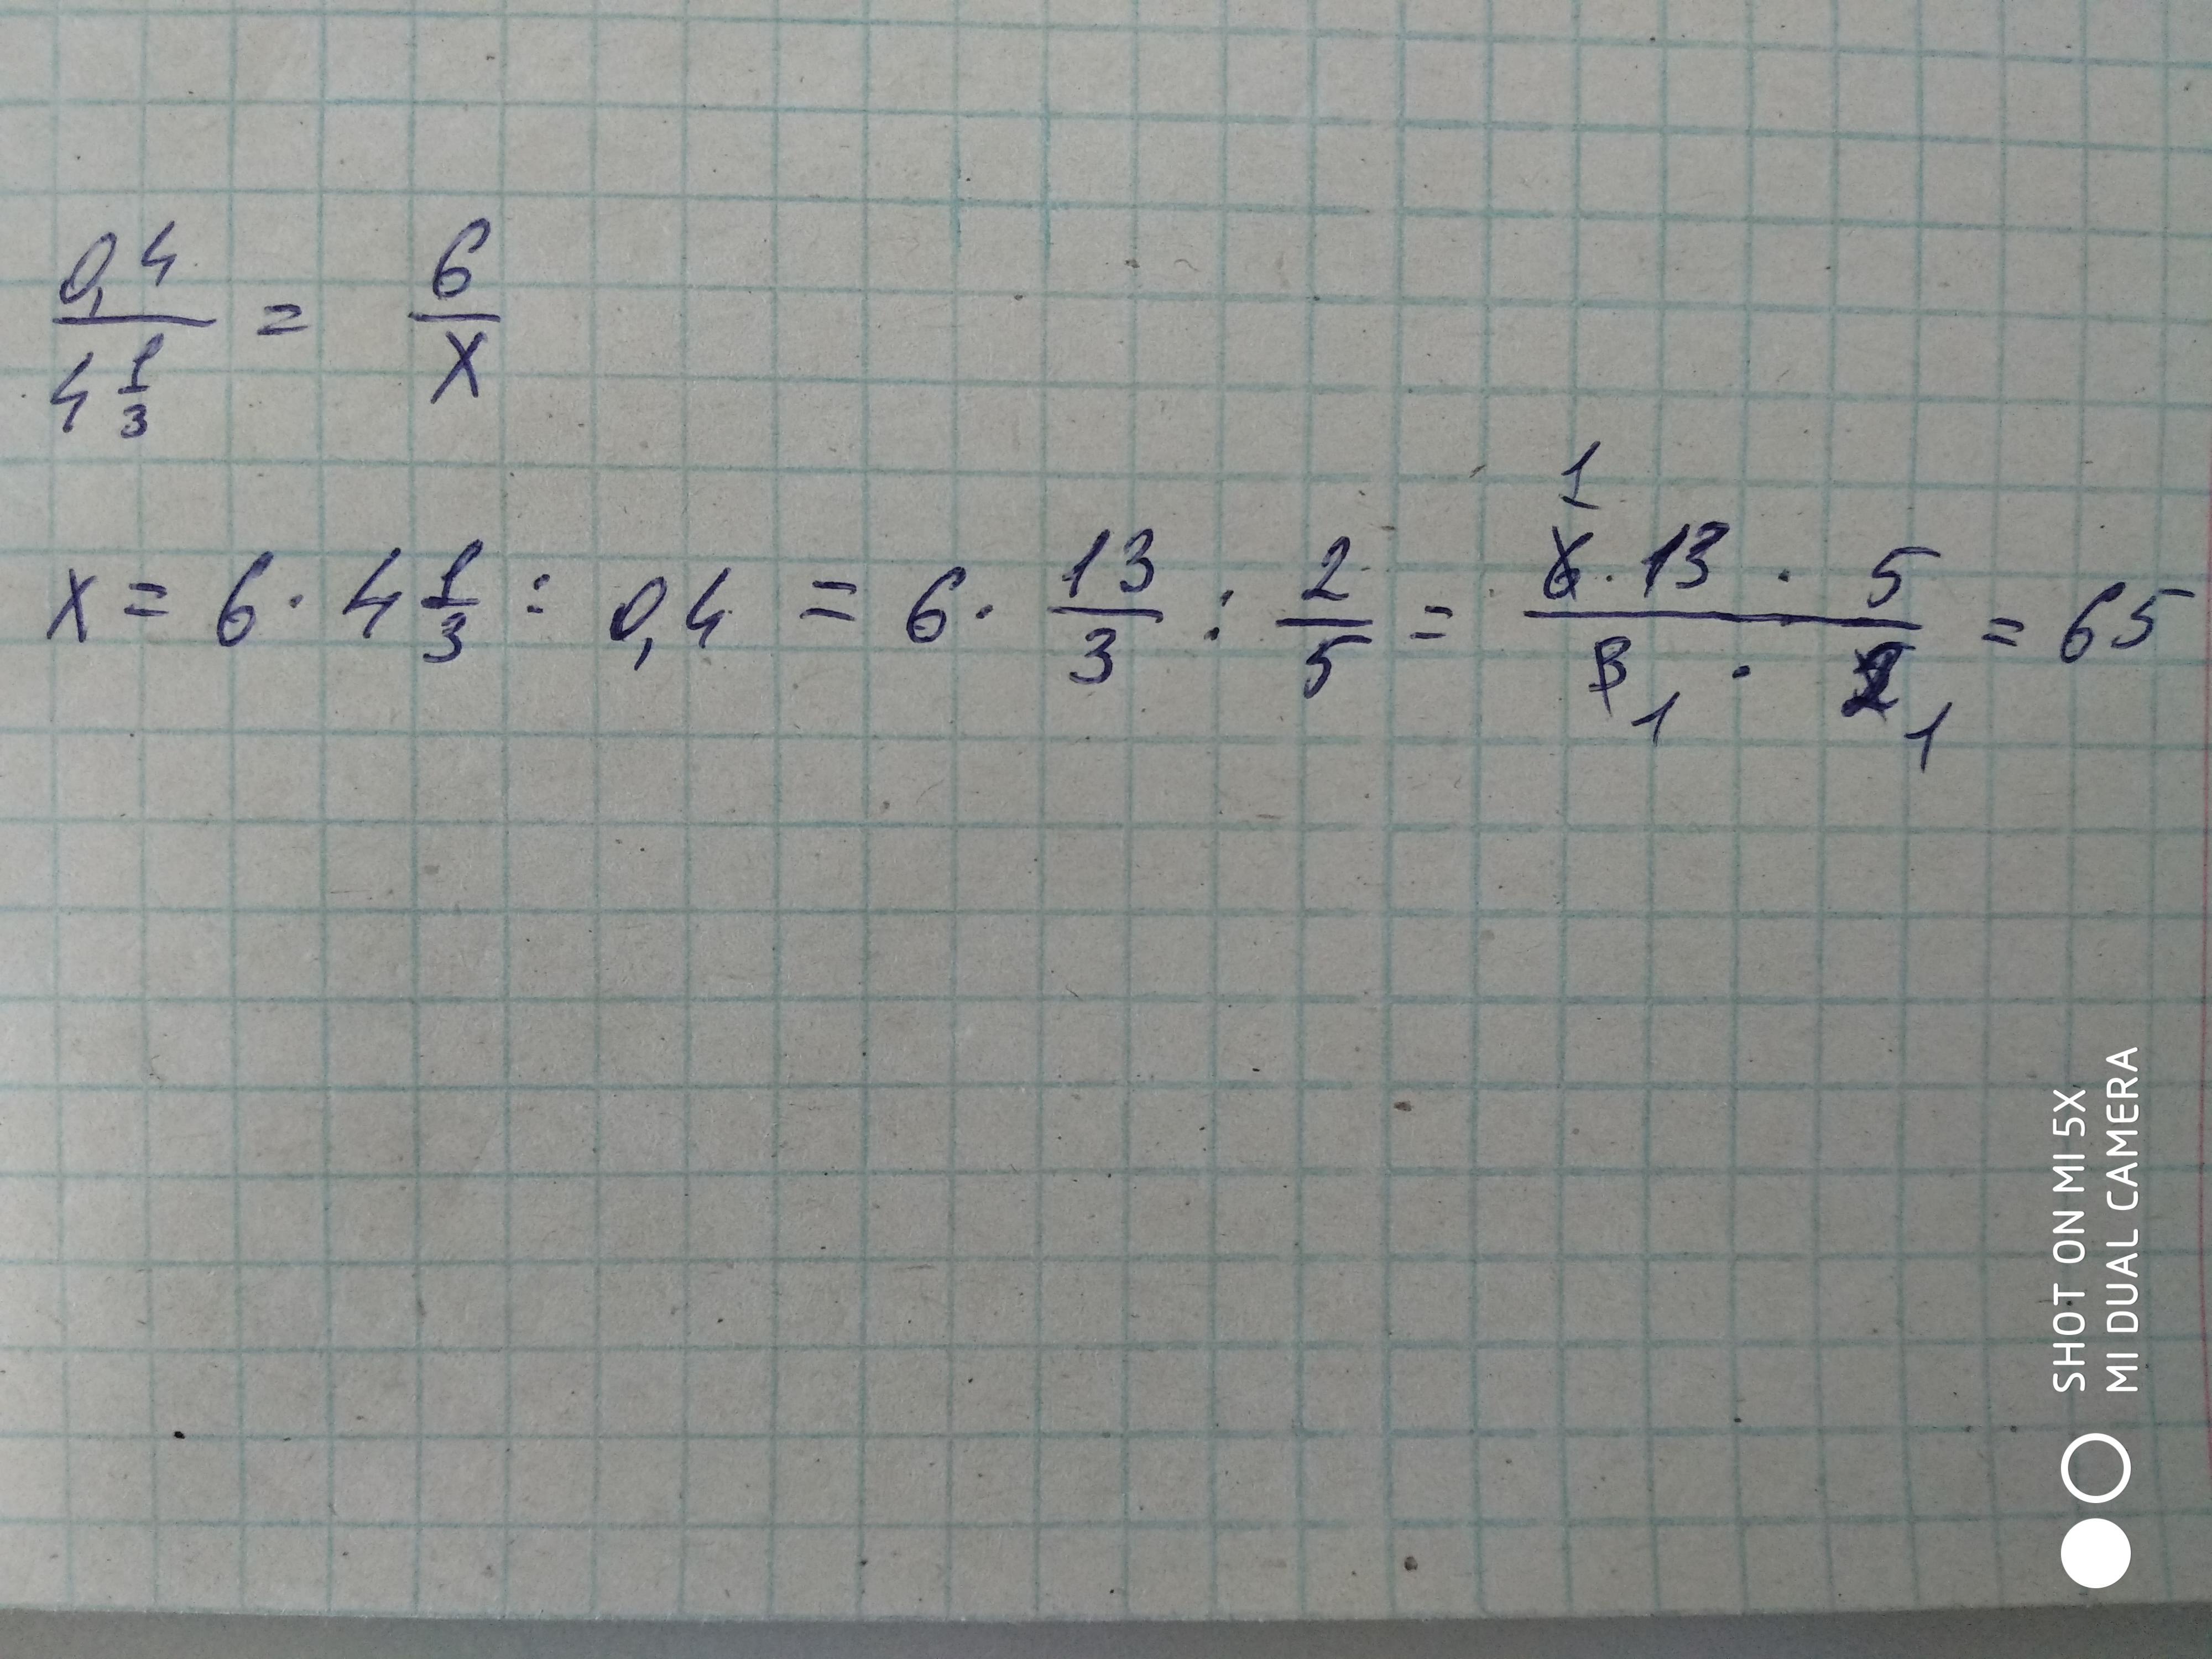 0,4/4 1/3 = 6/x
x = 6 · 4 1/3 : 0,4 = 6 · 13/3 : 2/5 = 6 1 · 13 · 5/3 1 · 2 1 = 65
SHOT ON MI 5X
MI DUAL CAMERA